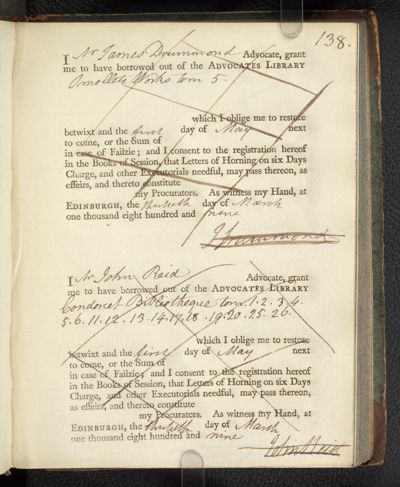 138.
I Mr James Drummond Advocate, grant
me to have borrowed out of the ADVOCATES LIBRARY
Smolletts Works tom 5.
which I oblige me to restore
betwixt and the first day of May next
to come, or the Sum of
in case of Failzie; and I consent to the registration hereof
in the Books of Session, that Letters of Horning on six Days
Charge, and other Executorials needful, may pass thereon, as
effeirs, and thereto constitute
my Procurators. As witness my Hand, at
EDINBURGH, the thirtieth day of March
one thousand eight hundred and nine
J Drummond
I Mr John Reid Advocate, grant
me to have borrowed out of the ADVOCATES LIBRARY
Condorcet Bibliotheque tom. 1. 2. 3. 4.
5. 6. 11. 12. 13. 14. 17. 18. 19. 20. 25. 26.
which I oblige me to restore
betwixt and the first day of May next
to come, or the Sum of
in case of Failzie; and I consent to the registration hereof
in the Books of Session, that Letters of Horning on six Days
Charge, and other Executorials needful, may pass thereon,
as effeirs, and thereto constitute
my Procurators. As witness my Hand, at
EDINBURGH, the thirtieth day of March
one thousand eight hundred and nine
John Reid